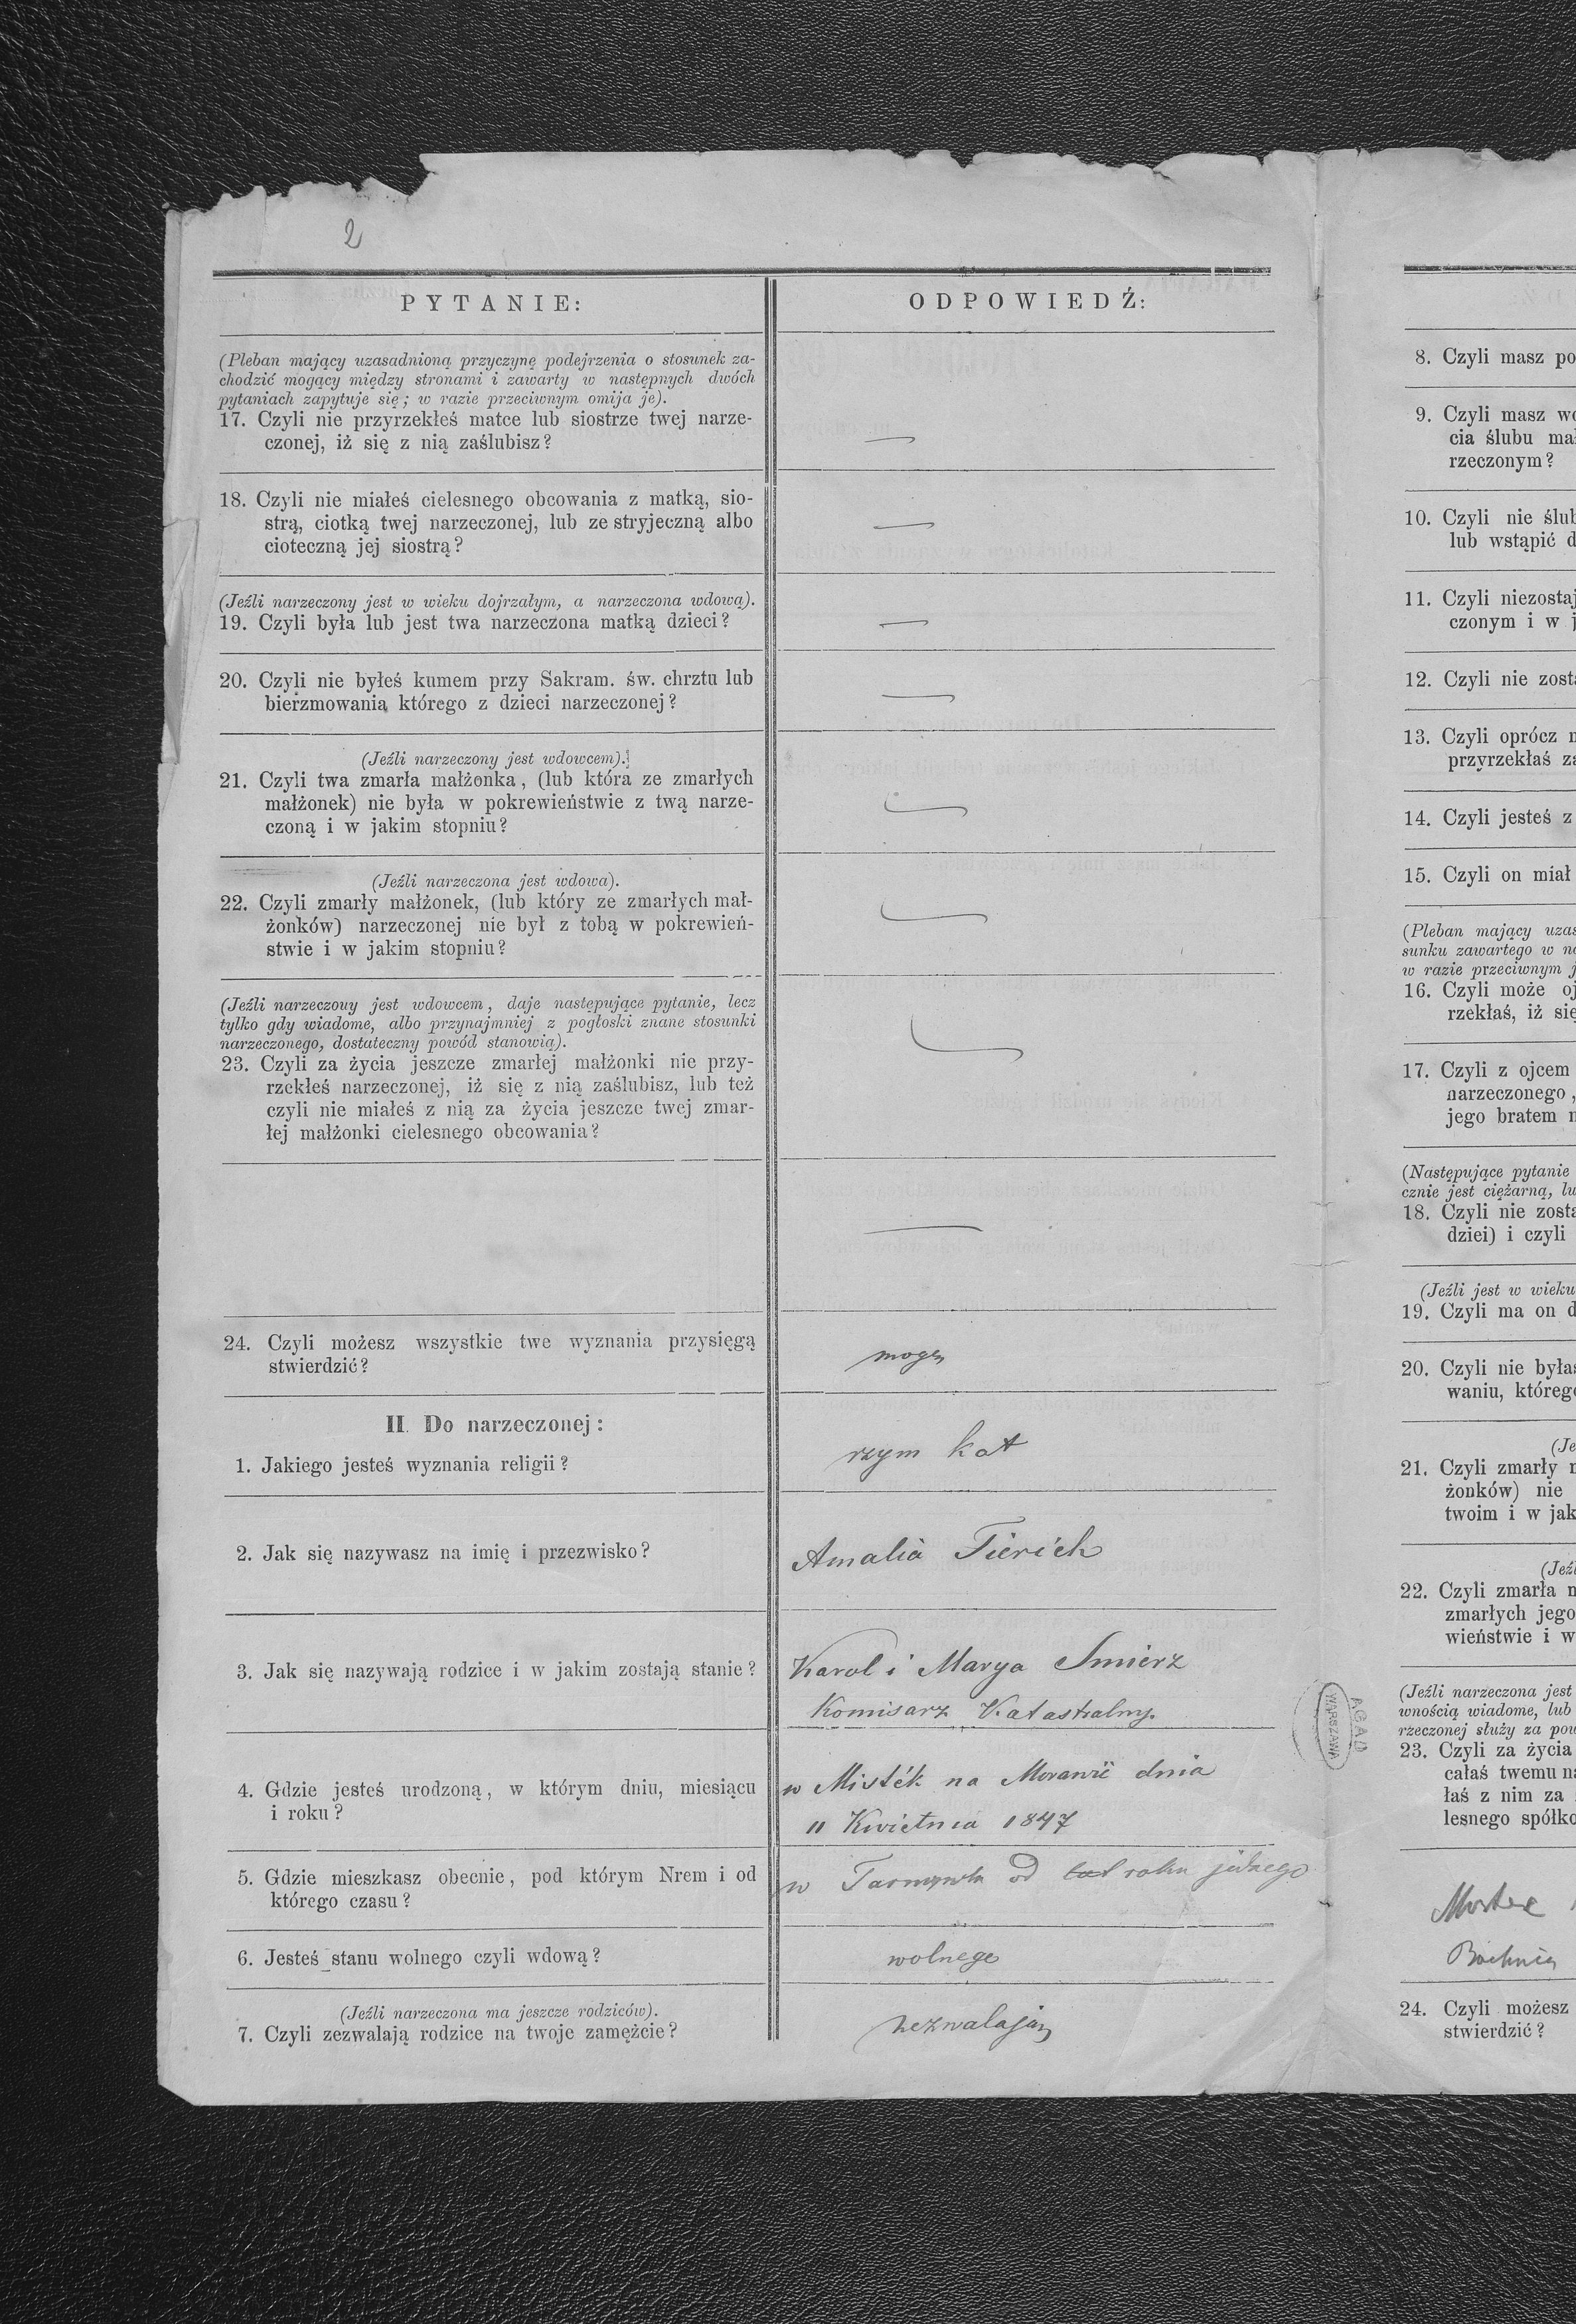 2
PYTANIE:
ODPOWIEDŹ:
(Pleban mający uzasadnioną przyczynę podejrzenia o stosunek za-
chodzić mogący między stronami i zawarty w następnych dwóch
pytaniach zapytuje się; w razie przeciwnym omija je).
17. Czyli nie przyrzekłeś matce lub siostrze twej narze-
czonej, iż się z nią zaślubisz?
—
18. Czyli nie miałeś cielesnego obcowania z matką, sio-
strą, ciotką twej narzeczonej, lub ze stryjeczną albo
cioteczną jej siostrą?
—
(Jeźli narzeczony jest w wieku dojrzałym, a narzeczona wdową).
19. Czyli była lub jest twa narzeczona matką dzieci?
—
20. Czyli nie byłeś kumem przy Sakram. św. chrztu lub
bierzmowania którego z dzieci narzeczonej?
—
(Jeźli narzeczony jest wdowcem).
21. Czyli twa zmarła małżonka, (lub która ze zmarłych
małżonek) nie była w pokrewieństwie z twą narze-
czoną i w jakim stopniu?
—
(Jeźli narzeczona jest wdowa).
22. Czyli zmarły małżonek, (lub który ze zmarłych mał-
żonków) narzeczonej nie był z tobą w pokrewień-
stwie i w jakim stopniu?
—
(Jeźli narzeczouy jest wdowcem, daje następujące pytanie, lecz
tylko gdy wiadome, albo przynajmniej z pogłoski znane stosunki
narzeczonego, dostateczny powód stanowią).
23. Czyli za życia jeszcze zmarłej małżonki nie przy-
rzekłeś narzeczonej, iż się z nią zaślubisz, lub też
czyli nie miałeś z nią za życia jeszcze twej zmar-
łej małżonki cielesnego obcowania?
—
—
24. Czyli możesz wszystkie twe wyznania przysięgą
stwierdzić?
mogę
II. Do narzeczonej:
1. Jakiego jesteś wyznania religii?
rzym kat
2. Jak się nazywasz na imię i przezwisko?
Amalia Tierich
3. Jak się nazywają rodzice i w jakim zostają stanie?
Karol i Marya Smierz
Komisarz Katastralny.
4. Gdzie jesteś urodzoną, w którym dniu, miesiącu
i roku?
w Misték na Morawii dnia
11 Kwietnia 1847
5. Gdzie mieszkasz obecnie, pod którym Nrem i od
którego czasu?
w od lat roku jednego
6. Jesteś stanu wolnego czyli wdową?
wolnego
(Jeźli narzeczona ma jeszcze rodziców).
7. Czyli zezwalają rodzice na twoje zamęźcie?
zezwalają
A.G.A.D
WARSZAWA
8. Czyli masz po
9. Czyli masz wo
cia ślubu mał
rzeczonym?
10. Czyli nie ślub
lub wstąpić d
11. Czyli niezostaj
czonym i w j
12. Czyli nie zosta
13. Czyli oprócz n
przyrzekłaś za
14. Czyli jesteś z
15. Czyli on miał
(Pleban mający uzas
sunku zawartego w na
w razie przeciwnym j
16. Czyli może oj
rzekłaś, iż się
17. Czyli z ojcem
narzeczonego,
jego bratem n
(Następujące pytanie
cznie jest ciężarną, lu
18. Czyli nie zosta
dziei) i czyli
(Jeźli jest w wieku
19. Czyli ma on d
20. Czyli nie byłaś
waniu, którego
(Je
21. Czyli zmarły m
żonków) nie
twoim i w jak
(Jeźl
22. Czyli zmarła m
zmarłych jego
wieństwie i w
(Jeźli narzeczona jest
wnością wiadome, lub
rzeczonej służy za pow
23. Czyli za życia
całaś twemu na
łaś z nim za
lesnego spółko
Bochnia
24. Czyli możesz
stwierdzić?